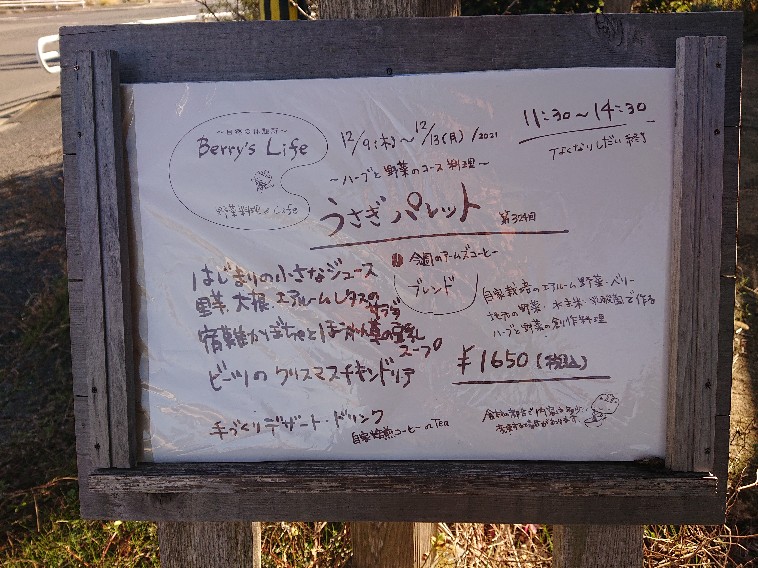 ～自然の休憩所～
Berry's Life
野菜料理 & Cafe
12/9(木)～12/13(月)/2021
11:30～14:30
なくなりしだい終了
～ハーブと野菜のコース料理～
うさぎパレット 第324回
今週のアームズコーヒー
ブレンド
はじまりの小さなジュース
里芋、大根、エアルームレタスの
サラダ
宿儺かぼちゃとほうれん草の豆乳
スープ
ビーツのクリスマスチキンドリア
手づくりデザート・ドリンク
自家焙煎コーヒー or Tea
自家栽培のエアルーム野菜・ベリー
地元の野菜・水・玄米・乳酸菌で作る
ハーブと野菜の創作料理
¥1650(税込)
食材の都合で内容は多少、
変更する場合があります。